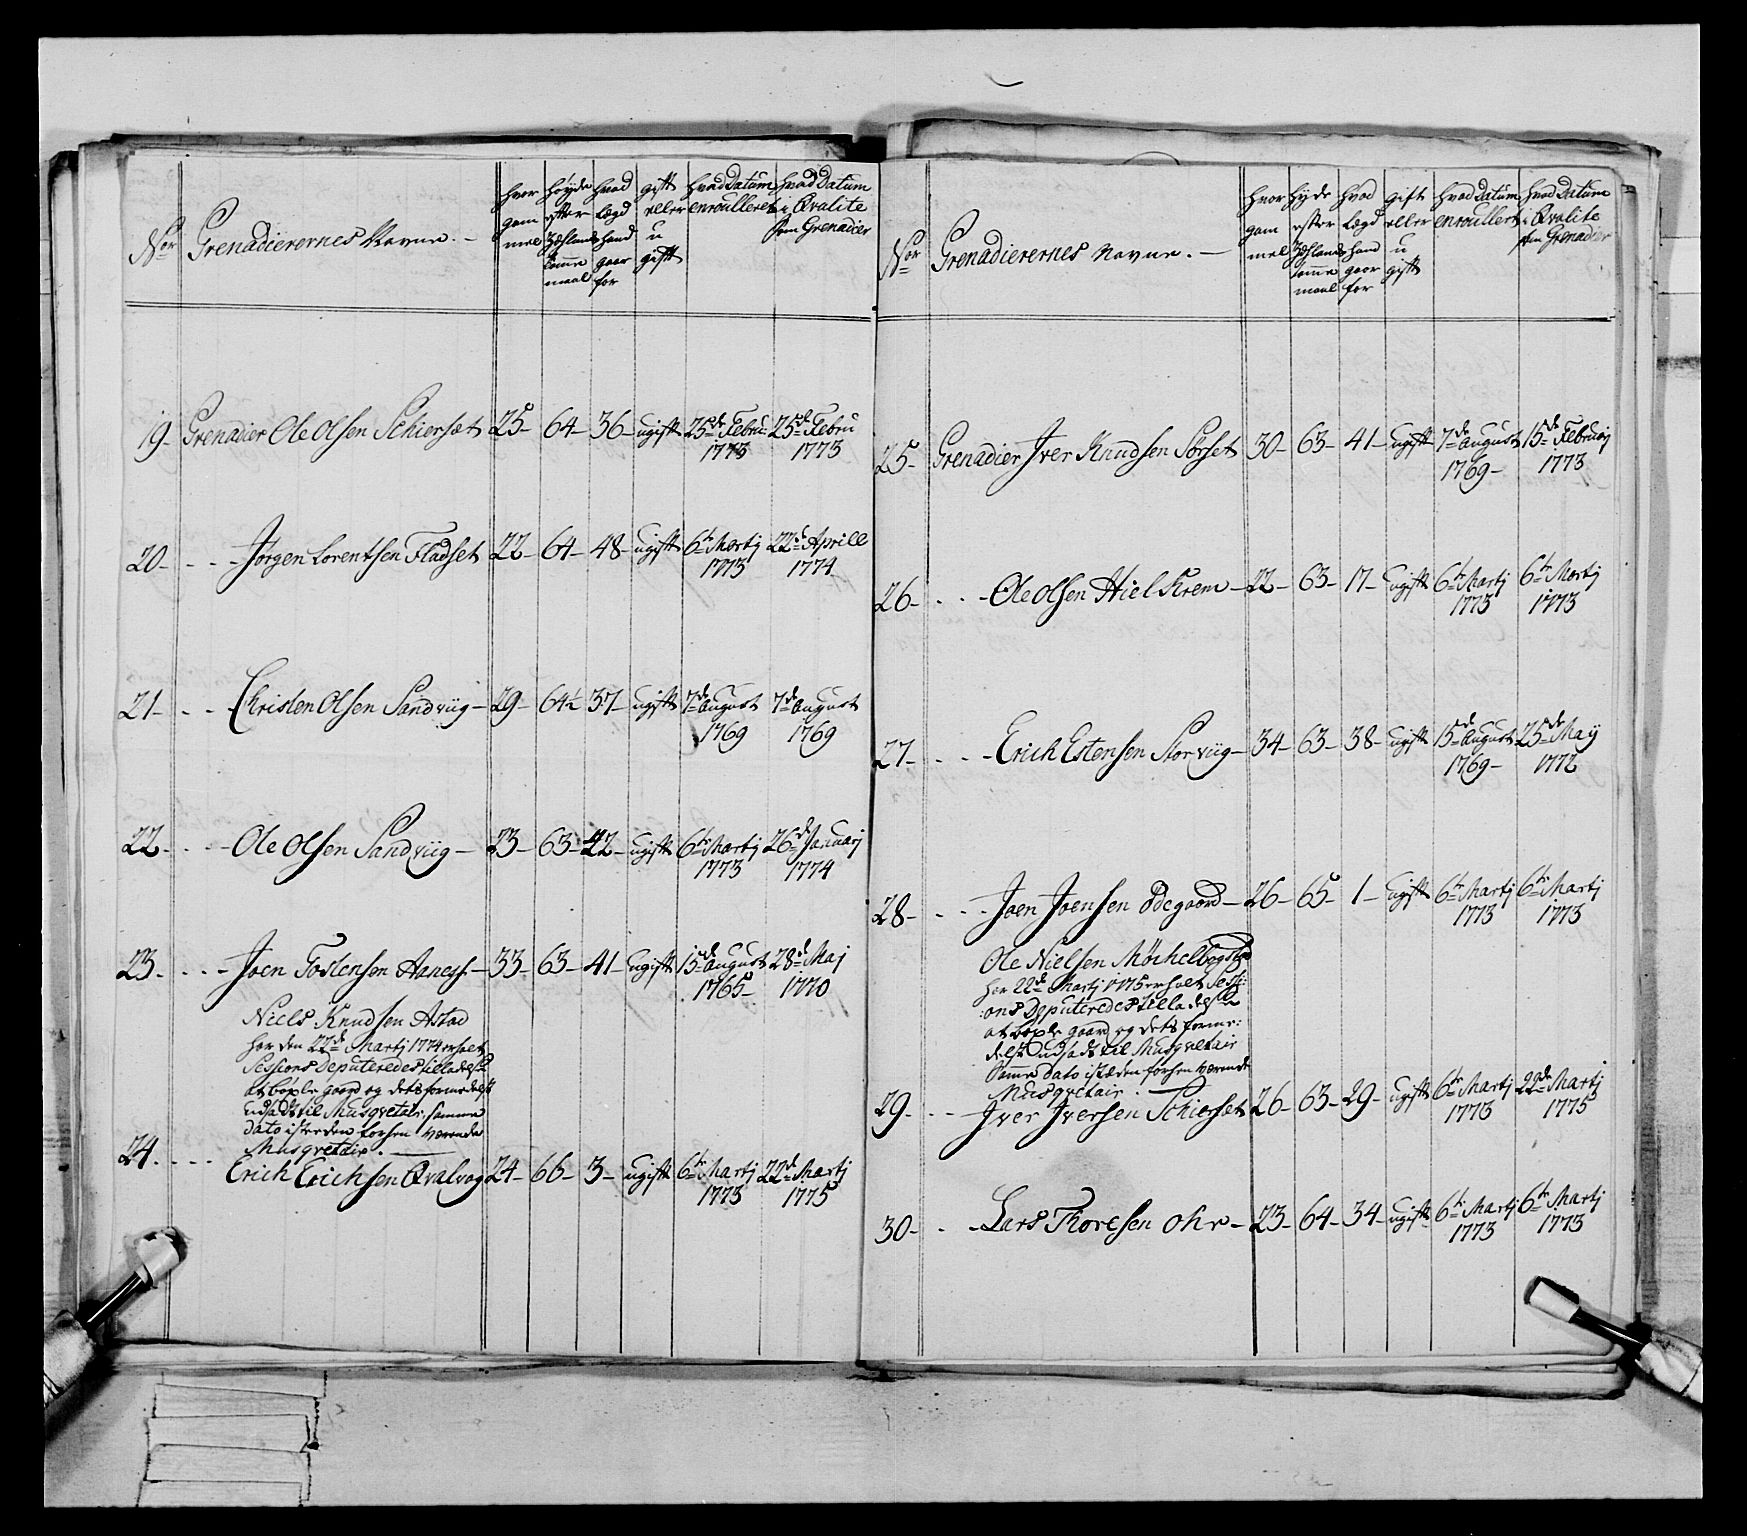 Nor Grenadierernes Navne. – hvor gammel høyde efter Zøhlands tomme maal hvad Lægd hand gaar for gift eller ugift hvad Datum enroulleret hvad Datum i Qvalite som Grenadier
19– Grenadier Ole Olsen Schiersæt 25 64– 36– ugift 25de Febru: 1773 25de Febru 1773
20– – – – Jørgen Lorentsen Fladset 22– 64– 48– ugift 6te Martj 1773 22de Aprill 1774
21– – – – Christen Olsen Sandviig – 29– 64½ 37– ugift 7de August 1769 7de August 1769
22. – – – Ole Olsen Sandviig – 23– 63– 42– ugift 6te Martj 1773 26de Januarj 1774
23. – – – Joen Tostensen Aaness – 33– 63– 41– ugift 15de August 1765– 28de Maj 1770
Niels Knudsen Astad
har den 22de Martj 1774 erholt
Sessions Deputeredes tilladelse
at boxle gaard og dets formedelst
udsadt til Musqvetair. samme
dato isteden forhen værende
Musqvetair. –
24. – – – Erich Erichsen Qvalvog 24– 66– 3– ugift 6te Martj 1773 22de Martj 1775
Nor Grenadierernes Navne. – hvor gammel hyde efter Zøhlands tomme maal hvad Lægd hand gaar for gift eller ugift hvad Datum enroullert hvad Datum i Qvalite som Grenadier
25– Grenadier Iver Knudsen Sørset 30– 63– 41– ugift 7de August 1769– 15de Februarj 1773
26– – – – Ole Olsen Hielkrem – 22– 63– 17– ugift 6te Martj 1773 6te Martj 1773
27– – – – Erich Estensen Storviig – 34– 63– 38– ugift 15de August 1769– 25de Maÿ 1772
28– – – – Joen Joensen Ødegaard – 26– 65– 1– ugift 6te Martj 1773 6te Martj 1773
Ole Nielsen
har 22de Martj 1775 erholt Sessi:
:ons Deputeredes tilladelse
at boxle gaard og dets forme:
delst udsadt til Musqvetair
Samme dato isteden forhen værende
Musqvetair. –
29– – – Iver Iversen Schierset 26– 63– 29– ugift 6te Martj 1773 22de Martj 1775
30– – – Lars Thoresen Ohr – 23– 64– 34– ugift 6te Martj 1773 6te Martj 1773